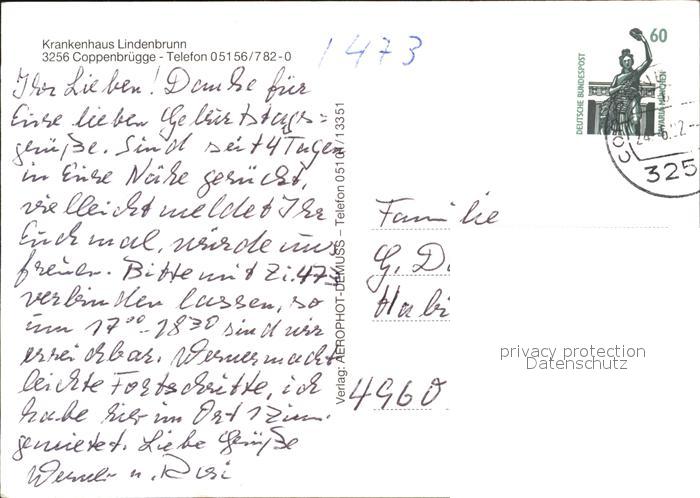 Krankenhaus Lindenbrunn
3256 Coppenbrügge - Telefon 05156/782-0
1473
Ihr Lieben! Danke für
Eure lieben Geburtstags=
grüße. Sind seit 4 Tagen
in Eure Nähe gerückt,
vielleicht meldet Ihr
Euch mal, würde uns
freuen. Bitte mit Zi. 473
verbinden lassen, so
um 17⁰⁰-18³⁰ sind wir
erreichbar. Werner macht
leichte Fortschritte, ich
habe hier im Ort 1 Zim.
gemietet. Liebe Grüße
Werner u. Rosi
Verlag: AEROPHOT-DEMUSS – Telefon 05101 / 13351
60
DEUTSCHE BUNDESPOST
BAVARIA MÜNCHEN
325
Familie
G. D
Habi
4960
privacy protection
Datenschutz